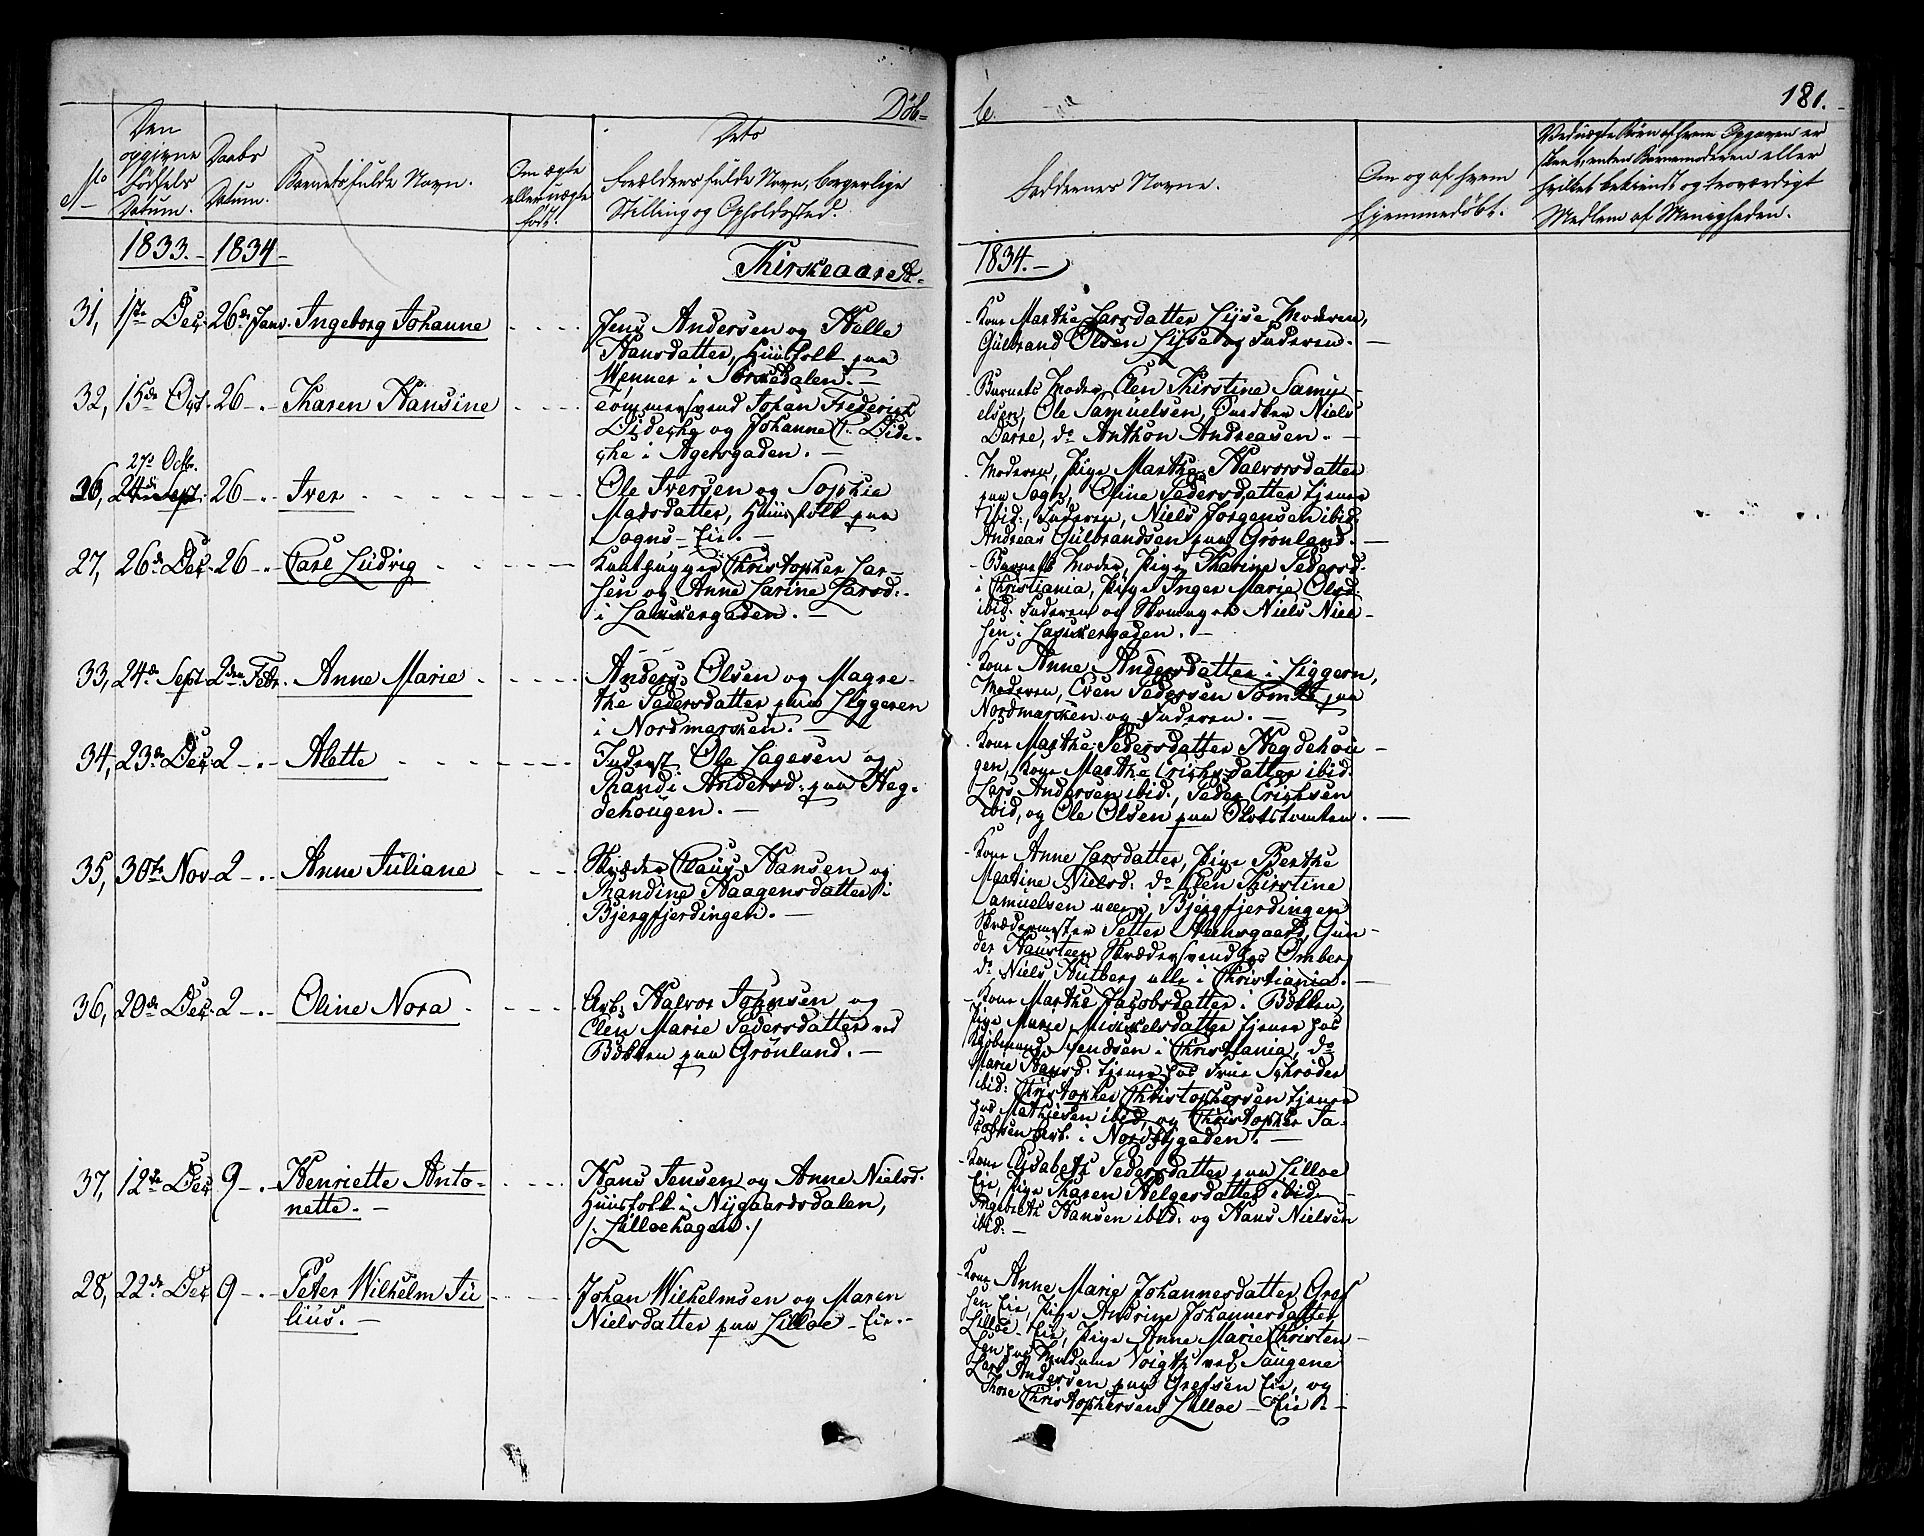 Döb-
te.
181.
No
Den opgivne Fødsels Datum.
Daabs Datum.
Barnets fulde Navn.
Om ægte eller uægte født.
Dets Forældres fulde Navn, borgerlige Stilling og Opholdssted.
Faddernes Navne.
Om og af hvem hjemmedøbt.
Ved uægte Børn af hvem Opgaven er skeet, enten Barnemoderen eller hvilket bekiendt og troværdigt Medlem af Menigheden.
1833.- 1834- Kirkeaaret- 1834.-
31, 1ste Dec. 26de Janv. Ingeborg Johanne
Jens Andersen og Helle
Hansdatter, Huusfolk paa
Wenner i Sørkedalen. -
Kone Marthe Larsdatter Lysse, Moderen,
Gulbrand Olsen Lysse og Faderen. -
32, 15de Oct. 26 -. Karen Hansine
Tommersvend Johan Frederich
Dideche og Johanne C. Dide-
che i Agersgaden. -
Barnets Moder, Elen Kirstine Samu-
elsen, Ole Samuelsen, Niels
Børre, do Anthon Andreasen. -
27de Octb.
26, 24de Sept. 26 -. Iver
Ole Iversen og Sophie
Madsdatter, Huusfolk paa
Sogns-Eie. -
Moderen, Pige Marthe Halvorsdatter
paa Sogn, Oline Pedersdatter tjener
ibid., Faderen, Niels Jørgensen ibid.
Andreas Gulbrandsen paa Grønland. -
27, 26de Dec. 26 -. Carl Ludvig
Christopher Lar-
sen og Anne Carine Larsd.
i Lakkergaden. -
Barnets Moder, Pige Karine Pedersd.
i Christiania, Pige Inger Marie Olsd.
ibid. Faderen og Skomager Niels Niel-
sen i Lakkergaden. -
33, 24de Sept. 2den Febr. Anne Marie
Anders Olsen og Magre-
the Pedersdatter paa Liggeren
i Nordmarken. -
Kone Anne Andersdatter i Liggern,
Moderen, Even Pedersen Tømte paa
Nordmarken og Faderen. -
34, 23de Dec. 2 -. Alette
Inderst Ole Lagesen og
Randi Andersd. paa Heg-
dehougen. -
Kone Marthe Pedersdatter Hegdehou-
gen, Kone Marthe Erichsdatter ibid.
Lars Andersen ibid., Peder Erichsen
ibid, og Ole Olsen paa Slotstomten. -
35, 30te Nov. 2 -. Anne Juliane
Skræder Claus Hansen og
Randine Haagensdatter i
Bjergfjerdingen. -
Kone Anne Larsdatter, Pige Berthe
Martine Nielsd. do Elen Kirstine
Samuelsen alle i Bjergfjerdingen
Skrædermester Petter Gun-
der Haursteen Skrædersvend hos Omberg
do Niels Hutberg alle i Christiania. -
36, 20de Dec. 2 -. Oline Nora
Arb. Halvor Johnsen og
Elen Marie Pedersdatter ved
Bakken paa Grønland. -
Kone Marthe Jacobsdatter i Bakken,
Pige Marie Mickelsdatter tjener hos
Kjøbmand Svendsen i Christiania, do
Marie Hansd. tjener hos Frue Schrøder
ibid: Christopher Christophersen tjener
hos Mathiesen ibid, og Christopher Ja-
cobsen Arb. i Nordbygaden. -
37, 12te Dec. 9 -. Henriette Anto-
nette. -
Hans Jensen og Anne Nielsd.
Huusfolk i Nygaardsdalen,
/: Lilloehagen :/
Kone Elsabeth Pedersdatter paa Lilloe
Eie, Pige Karen Helgesdatter ibid.
Ingebreth Hansen ibid. og Hans Nielsen
ibid: -
28, 22de Dec. 9 -. Peter Wilhelm Ju-
lius. -
Johan Wilhelmsen og Maren
Nielsdatter paa Lilloe-Eie.-
Kone Anne Marie Johannesdatter Gref-
sen Eie, Pige Andrine Johannesdatter
Lilloe-Eie, Pige Anne Marie Christen-
sen hos Madame Voigth ved Saugene
Lars Andersen paa Grefsen Eie, og
Thore Christophersen Lilloe-Eie.-